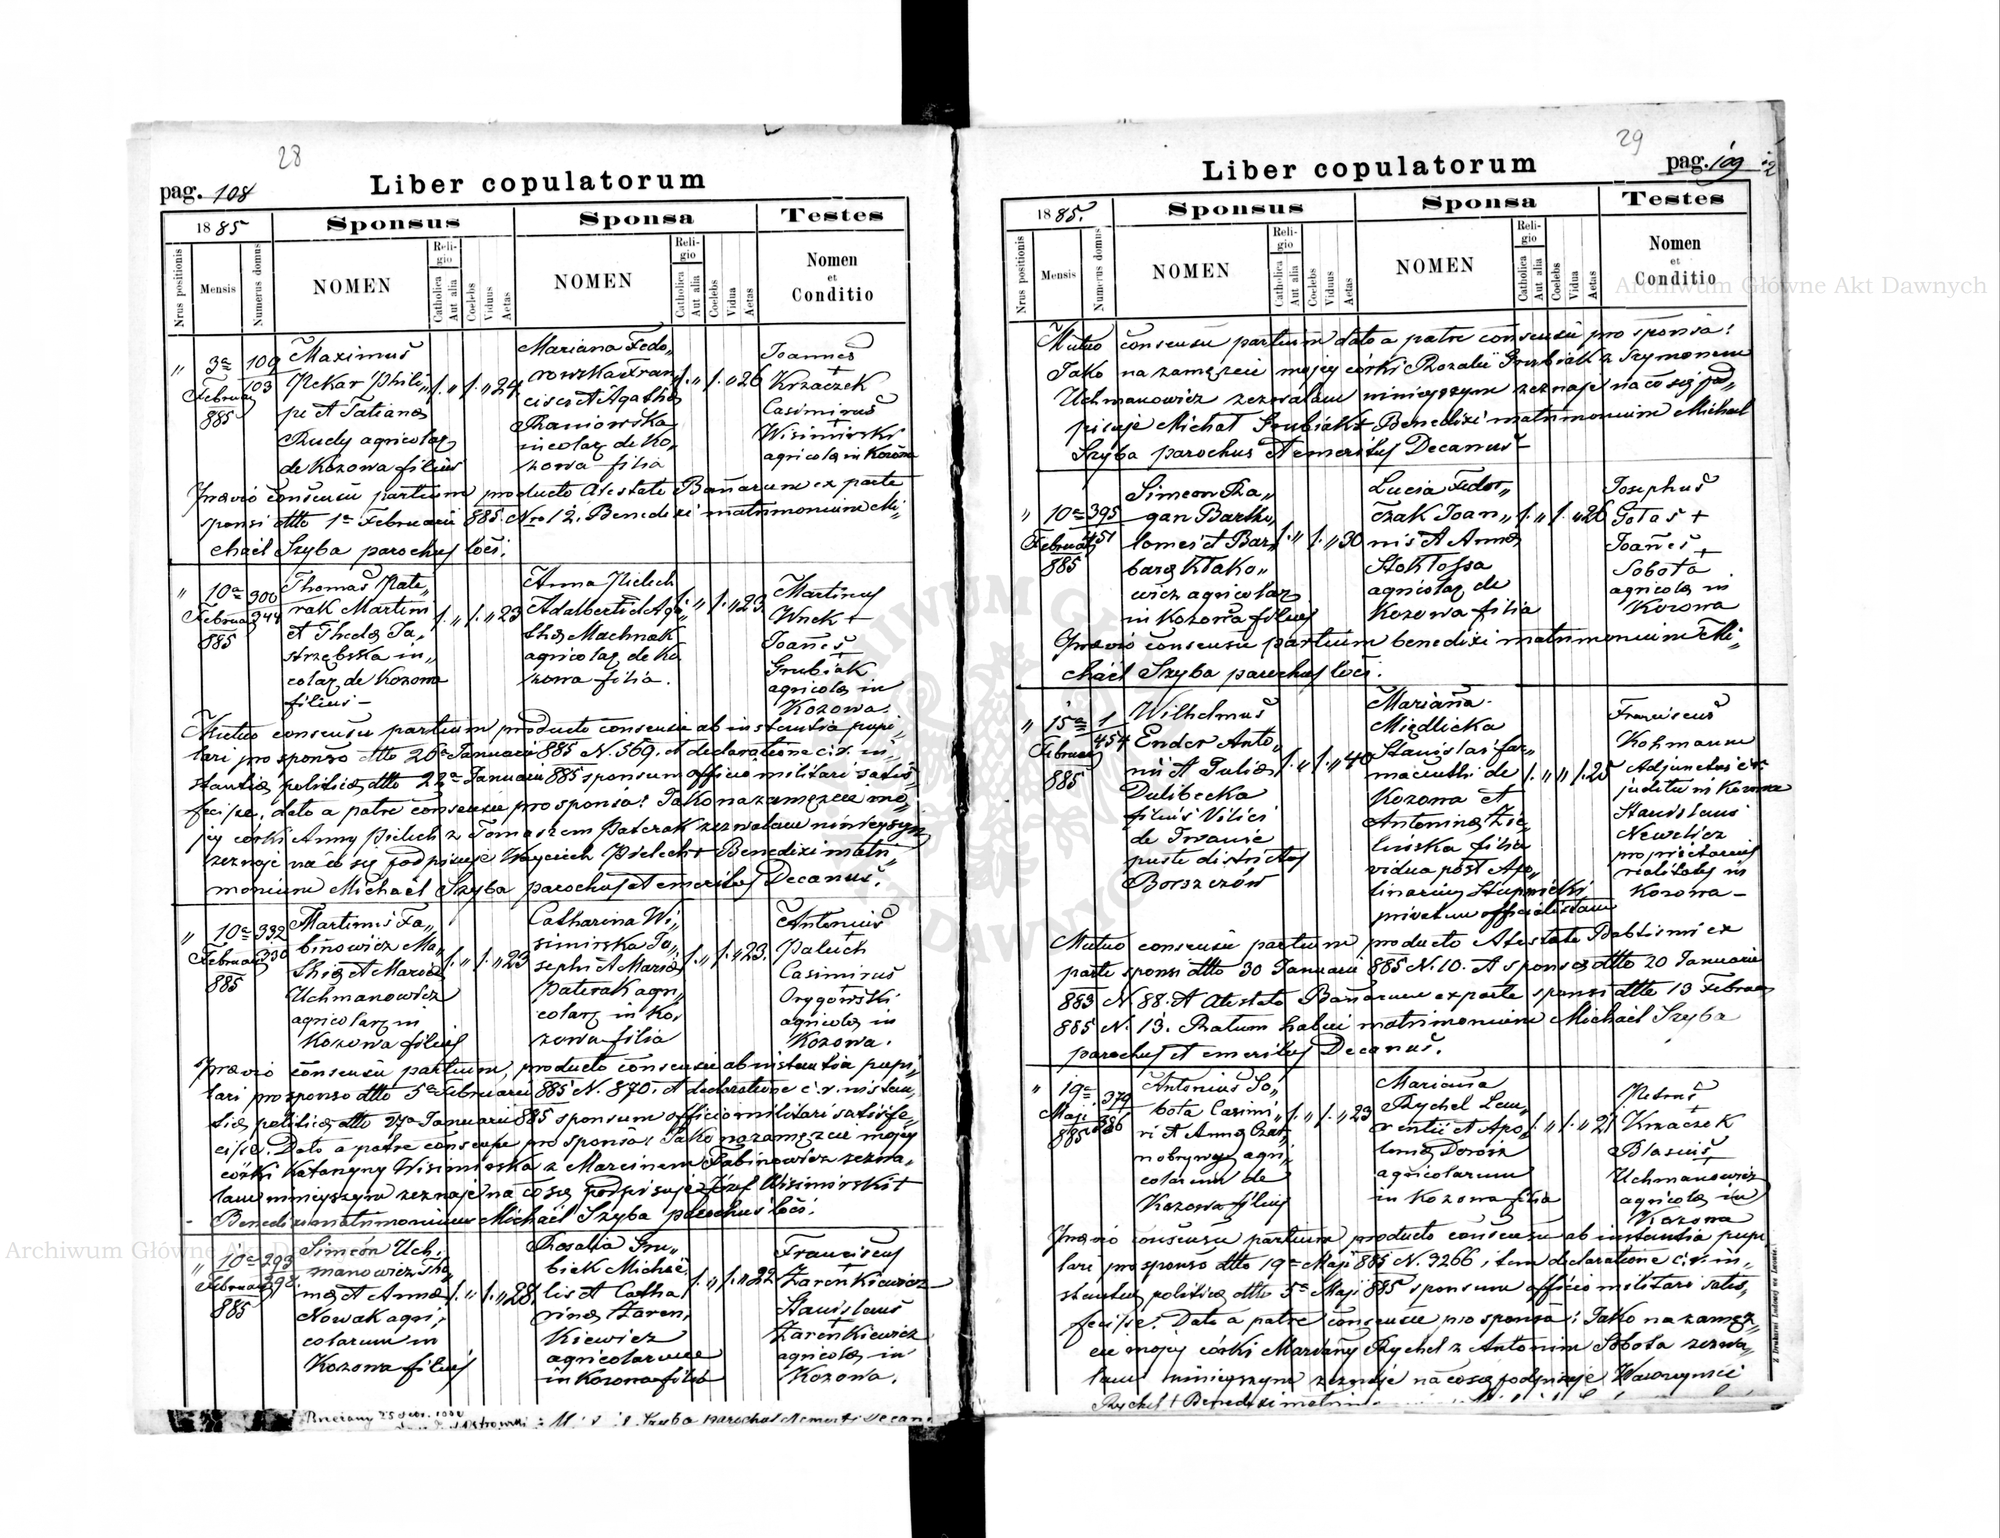 28
Liber copulatorum
pag. 108
1885
Sponsus
Sponsa
Testes
Nrus positionis
Mensis
Numerus domus
NOMEN
Religio
Catholica
Aut alia
Coelebs
Viduus
Aetas
NOMEN
Religio
Catholica
Aut alia
Coelebs
Vidua
Aetas
Nomen
et
Conditio
" 3a Februar 885
109
103
Maximus
Pekar Phili„
pi et Tatiana
Rudy agricolar
de Kozowa filius
1. " 1. " 24
Mariana Fedo„
rowska Fran„
cisci et Agatha
Raniowska
incolar de Ko„
zowa filia
1. " 1. " 26
Joannes
+
Krzaczek
Casimirus
+
Wisimirski
agricola in Kozowa
Praevio consensu partium producto Atestate Banarum ex parte
sponsi dtto 1a Februarii 885 Nro 12. Benedixi matrimonium Mi„
chaël Szyba parochus loci.
" 10a Februar 885
300
344
Thomas Pate„
rak Martini
et Theda Ja„
strzębska in„
colar de Kozowa
filius —
1. " 1. " 23
Anna Pielech
Adalberti et Aga„
tha Machnak
agricolar de Ko
zowa filia.
" 1. " 23
Martinus
Wnek +
Joanes
+
Grubiak
agricola in
Kozowa.
Mutuo consensu partium producto consensu ab instantia pupi„
lari pro sponso dtto 20a Januarii 885 N. 569. et declaratione c. r. in„
stantia politica dtto 22a Januarii 885 sponsum officio militari satis„
fecisse, dato a patre consensu pro sponsa: Jako na zamęzcie mo„
jej córki Anny Pielech z Tomaszem Paterak zezwalam niniejszym
zeznaję na co się podpisuję Woyciech Pielech + Benedixi matri„
monium Michaël Szyba parochus et emeritus Decanus.
" 10a Februar 885
332
330
Martinus Fa„
binowicz Ma„
thia et Maria
Uchmanowicz
agricolarz in
Kozowa filius
1. " 1. " 23
Catharina Wi„
simirska Jo„
sephi et Maria
Paterak agri„
colarz in Ko„
zowa filia
1. " 1. " 23.
Antonius
+
Paluch
Casimirus
+
Orygowski
agricola in
Kozowa.
Praevio consensu partium, producto consensu ab instantia pupi„
lari pro sponso dtto 5a Februarii 885 N. 870. et declaratione c. r. instan„
tia politica dtto 27a Januarii 885 sponsum officio militari satisfe„
cisse. Dato a patre consensu pro sponsa: Jako na zamęzcie mojej
córki Katarzyny Wisimirska z Marcinem Fabinowicz zezwa„
lam niniejszym zeznaję na co się podpisuję Józef Wisimirski +
Benedixi matrimonium Michaël Szyba parochus loci.
" 10a Februar 885
293
292
Simeon Uch„
manowicz Tho„
ma et Anna
Nowak agri„
colarum in
Kozowa filius
1. " 1. " 28
Rosalia Gru„
biek Michaë„
lis et Catha
rina Zaren„
kiewicz
agricolarum
in Kozowa filia
1. " 1. " 22
Franciscus
+
Zarenkiewicz
Stanislaus
+
Zarenkiewicz
agricola in
Kozowa.
Szyba parochus et emerit. Decan
29
Liber copulatorum
pag. 109
1885.
Sponsus
Sponsa
Testes
Nrus positionis
Mensis
Numerus domus
NOMEN
Religio
Catholica
Aut alia
Coelebs
Viduus
Aetas
NOMEN
Religio
Catholica
Aut alia
Coelebs
Vidua
Aetas
Nomen
et
Conditio
Mutuo consensu partium dato a patre consensu pro sponsa:
Jako na zamęzcie mojej córki Rozalii Grubiak z Szymonem
Uchmanowicz zezwalam niniejszym zeznaję na co się pod„
pisuję Michał Grubiak + Benedixi matrimonium Michael
Szyba parochus et emeritus Decanus —
" 10a Februar 885
395
451
Simeon Ra„
gan Bartho„
lomei et Bar„
bara Kłako„
wicz agricolar
in Kozowa filius
1. " 1. " 30
Lucia Fedor„
czak Joan„
nis et Anna
Stokłossa
agricolar de
Kozowa filia
1. " 1. " 26
Josephus
Gołas +
Joanes
+
Sobota
agricola in
Kozowa
Praevio consensu partium benedixi matrimonium Mi„
chaël Szyba parochus loci.
" 15a Februar 885
1
454
Wilhelmus
Ender Anto„
nii et Julia
Dulibecka
filius Vilici
de Iwanie
puste districtus
Borszczów
1. " 1. " 40
Mariana
Międlicka
Stanislai far„
maceuthi de
Kozowa et
Antonina Zie„
linska filia
vidua post Apo„
linarium Stupnicki
privatum officialistam
1. " " 1. 25
Franciscus
Kohmann
Adjunctus c. r.
juditii in Kozowa
Stanislaus
Newelicz
proprietarius
realitatis in
Kozowa —
Mutuo consensu partium producto Atestate Babtismi ex
parte sponsi dtto 30 Januarii 885 N. 10. et sponsa dtto 20 Januarii
883 N. 88. et Atestato Banarum ex parte sponsi dtto 13 Februar
885 N. 13. Ratum habui matrimonium Michaël Szyba
parochus et emeritus Decanus.
" 19a Maji 885
379
386
Antonius So„
bota Casimi„
ri et Anna Czar„
nobrywy agri„
colarum de
Kozowa filius
1. " 1. " 23
Mariana
Rychel Lau„
rentii et Apo„
lonia Dorosz
agricolarum
in Kozowa filia
1. " 1. " 21
Petrus
+
Krzaczek
Blasius
+
Uchmanowicz
agricola in
Kozowa
Praevio consensu partium producto consensu ab instantia pupi
lari pro sponso dtto 19a Maji 885 N. 3266, item declaratione c. r. in„
stantia politica dtto 5a Maji 885 sponsum officio militari satis„
fecisse. Dato a patre consensu pro sponsa: Jako na zamęz„
cie mojej córki Maryanny Rychel z Antonim Sobota zezwa„
lam niniejszym zeznaję na co się podpisuję Wawrzyniec
Rychel + Benedixi matrim
Z Drukarni Ludowej we Lwowie.
Archiwum Główne Akt Dawnych
Archiwum Główne Akt Dawnych
ARCHIWUM GŁÓWNE AKT DAWNYCH